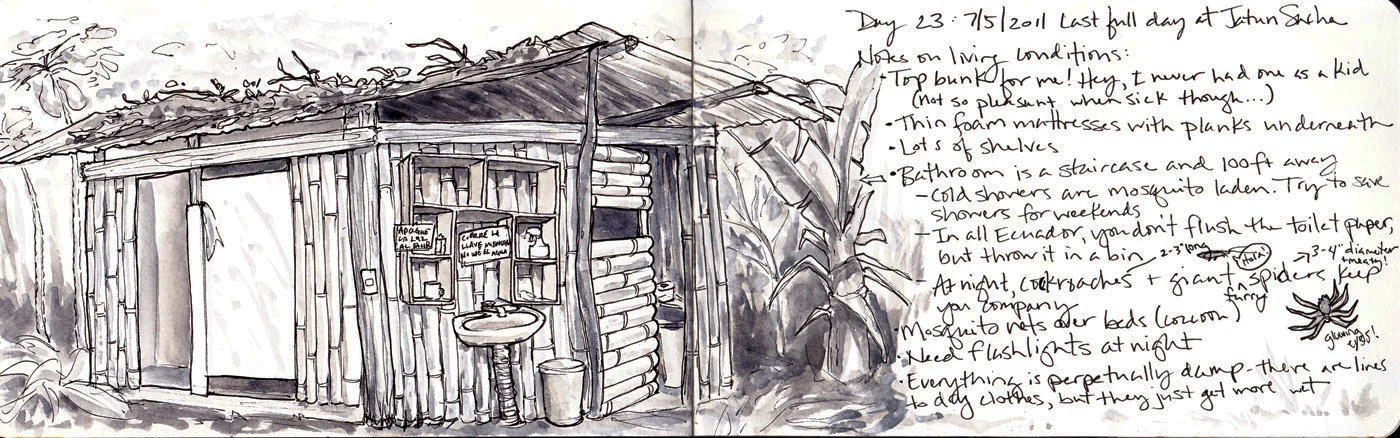 APAGUE
LA LUZ
AL SALIR
CIERRE LA
LLAVE MIENTRAS
NO USE EL AGUA
Day 23: 7/5/2011 Last full day at Jatun Sacha
Notes on living conditions:
• Top bunk for me! Hey, I never had one as a kid
(not so pleasant when sick though...)
• Thin foam mattresses with planks underneath
• Lots of shelves
• Bathroom is a staircase and 100ft away
– Cold showers are mosquito laden. Try to save
showers for weekends
– In all Ecuador, you don't flush the toilet paper,
but throw it in a bin
2-3" long
¡Hola!
3-4" diameter
+ meaty
– At night, cockroaches + giant furry spiders keep
you company
glowing
eyes!
• Mosquito nets over beds (cocoon)
• Need flashlights at night
• Everything is perpetually damp - there are lines
to dry clothes, but they just get more wet